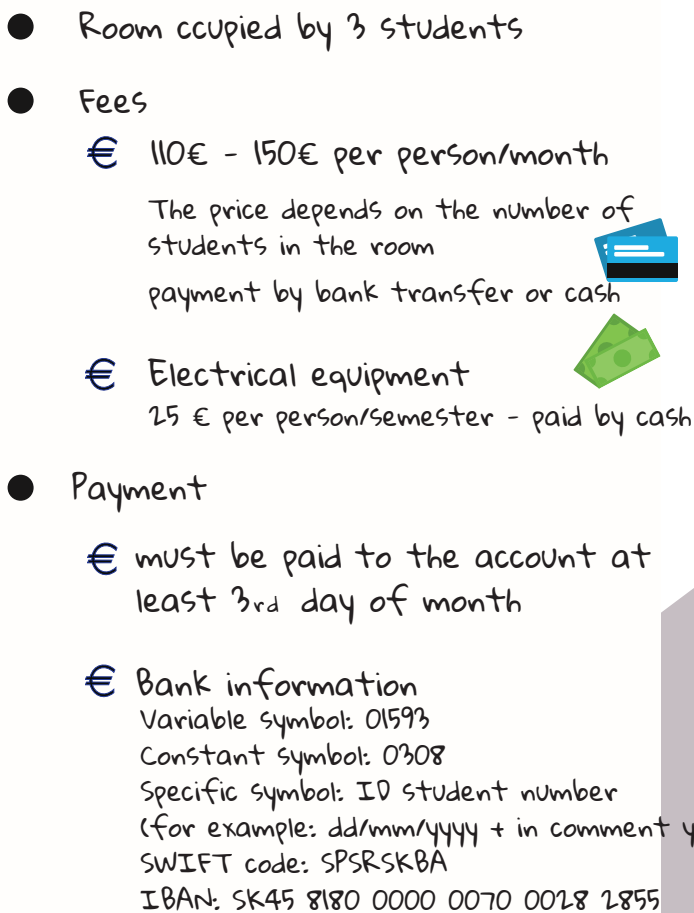 Room ccupied by 3 students
Fees
€ 110€ - 150€ per person/month
The price depends on the number of
students in the room
payment by bank transfer or cash
€ Electrical equipment
25 € per person/semester - paid by cash
Payment
€ must be paid to the account at
least 3rd day of month
€ Bank information
Variable symbol: 01593
Constant symbol: 0308
Specific symbol: ID student number
(for example: dd/mm/yyyy + in comment y
SWIFT code: SPSRSKBA
IBAN: SK45 8180 0000 0070 0028 2855